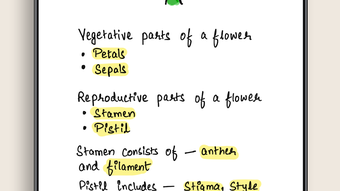 Vegetative parts of a flower
• Petals
• Sepals
Reproductive parts of a flower
• Stamen
• Pistil
Stamen consists of — anther
and filament
Pistil includes — Stigma, Style